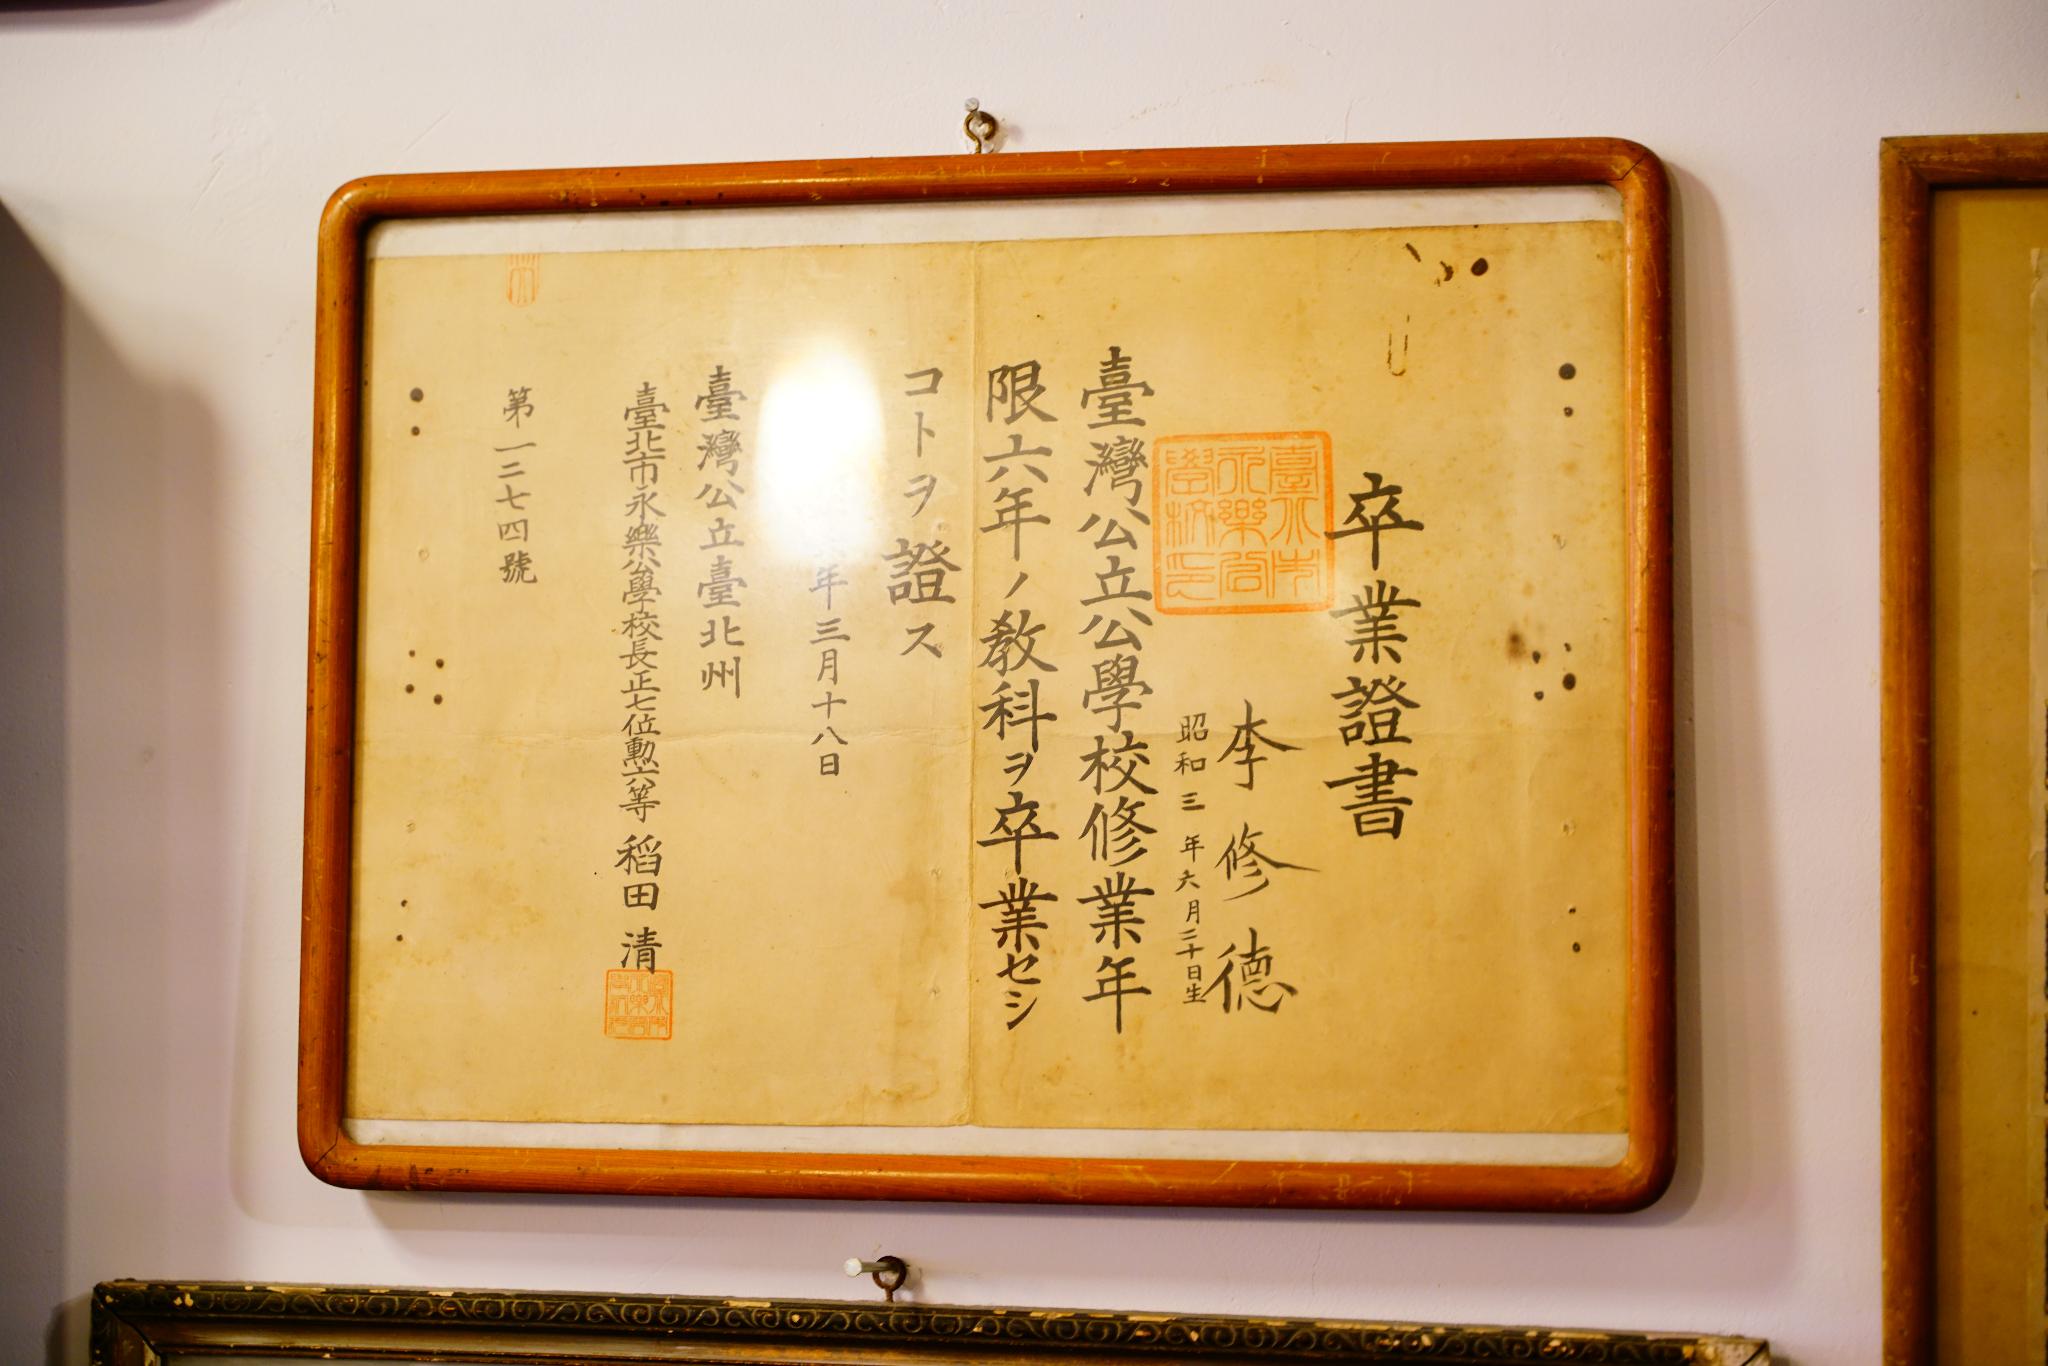 卒業證書
臺北市
永樂公
學校印
李修德
昭和三年六月二十日生
臺灣公立公學校修業年
限六年ノ教科ヲ卒業セシ
コトヲ證ス
年三月十八日
臺灣公立臺北州
臺北市永樂公學校長正七位勲六等 稻田清
第一二七四號